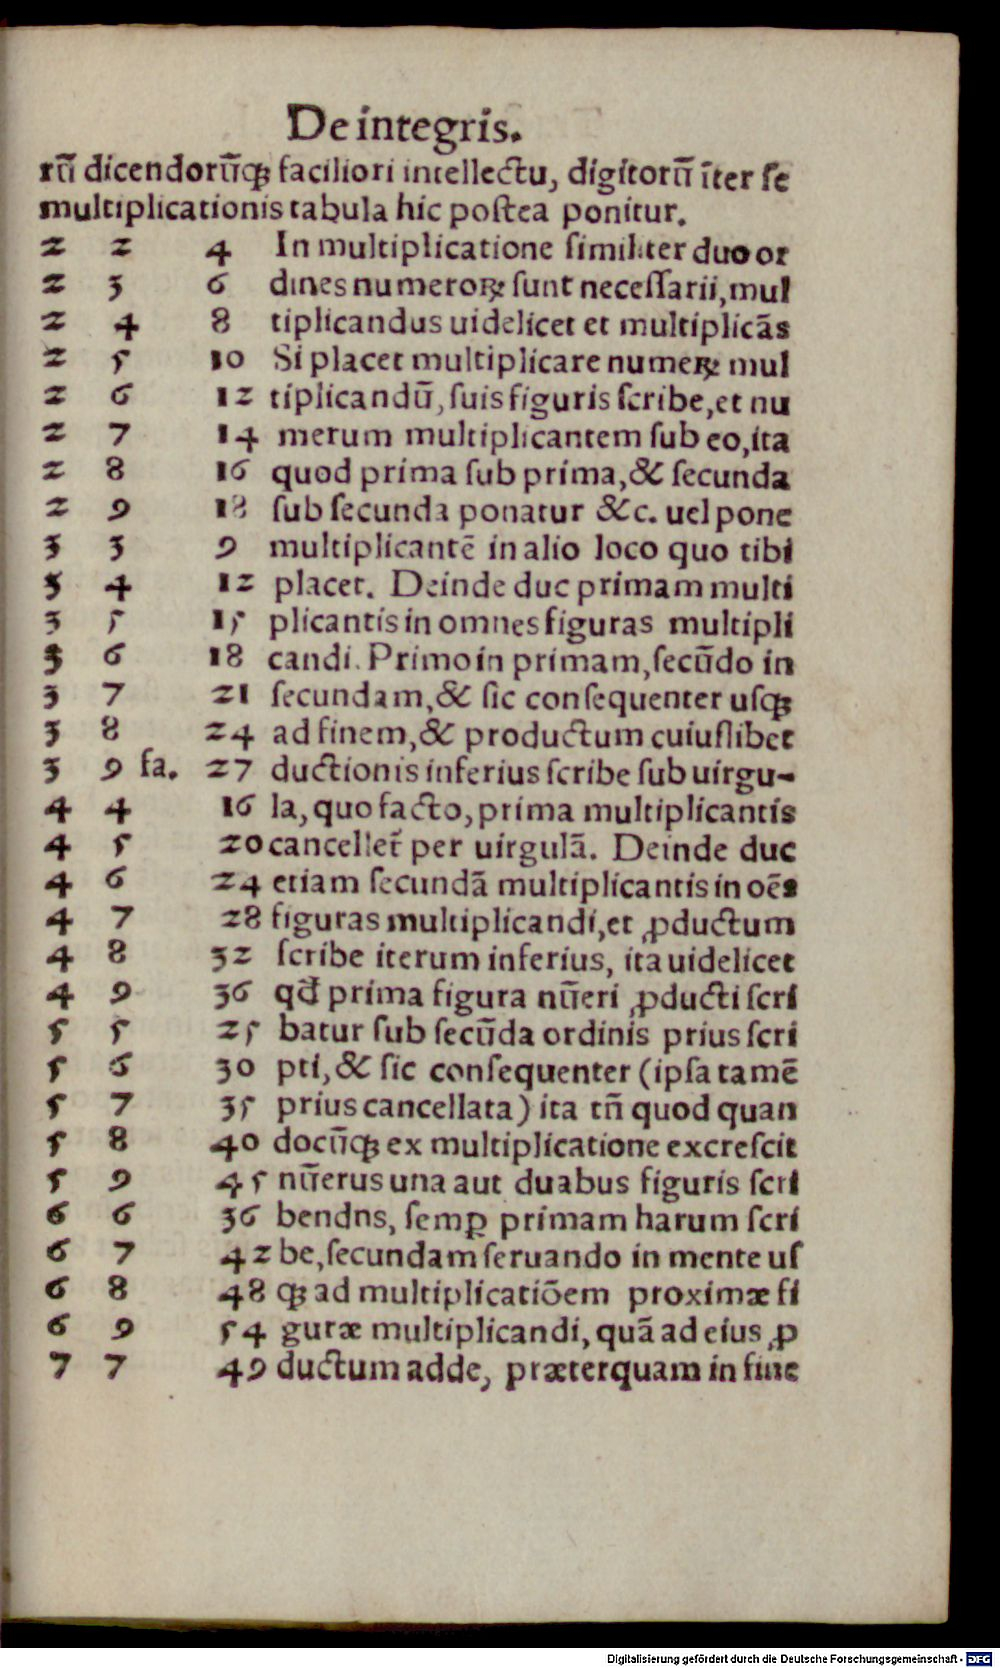 De integris.
rū dicendorūqꝫ faciliori intellectu, digitorū īter se
multiplicationis tabula hic postea ponitur.
2 2 4 In multiplicatione similiter duo or
2 3 6 dines numeroꝝ sunt necessarii, mul
2 4 8 tiplicandus uidelicet et multiplicās
2 5 10 Si placet multiplicare numeꝝ mul
2 6 12 tiplicandū, suis figuris scribe, et nu
2 7 14 merum multiplicantem sub eo, ita
2 8 16 quod prima sub prima, & secunda
2 9 18 sub secunda ponatur &c. uel pone
3 3 9 multiplicantē in alio loco quo tibi
3 4 12 placet. Deinde duc primam multi
3 5 15 plicantis in omnes figuras multipli
3 6 18 candi. Primo in primam, secūdo in
3 7 21 secundam, & sic consequenter usqꝫ
3 8 24 ad finem, & productum cuiuslibet
3 9 fa. 27 ductionis inferius scribe sub uirgu-
4 4 16 la, quo facto, prima multiplicantis
4 5 20 cancellet̄ per uirgulā. Deinde duc
4 6 24 etiam secundā multiplicantis in oēs
4 7 28 figuras multiplicandi, et ꝓductum
4 8 32 scribe iterum inferius, ita uidelicet
4 9 36 qđ prima figura nūeri ꝓducti scri
5 5 25 batur sub secūda ordinis prius scri
5 6 30 pti, & sic consequenter (ipsa tamē
5 7 35 prius cancellata) ita tn̄ quod quan
5 8 40 docūqꝫ ex multiplicatione excrescit
5 9 45 nūerus una aut duabus figuris scri
6 6 36 bendns, semꝑ primam harum scri
6 7 42 be, secundam seruando in mente us
6 8 48 qꝫ ad multiplicatiōem proximæ fi
6 9 54 guræ multiplicandi, quā ad eius ꝓ
7 7 49 ductum adde, præterquam in fine
Digitalisierung gefördert durch die Deutsche Forschungsgemeinschaft - DFG